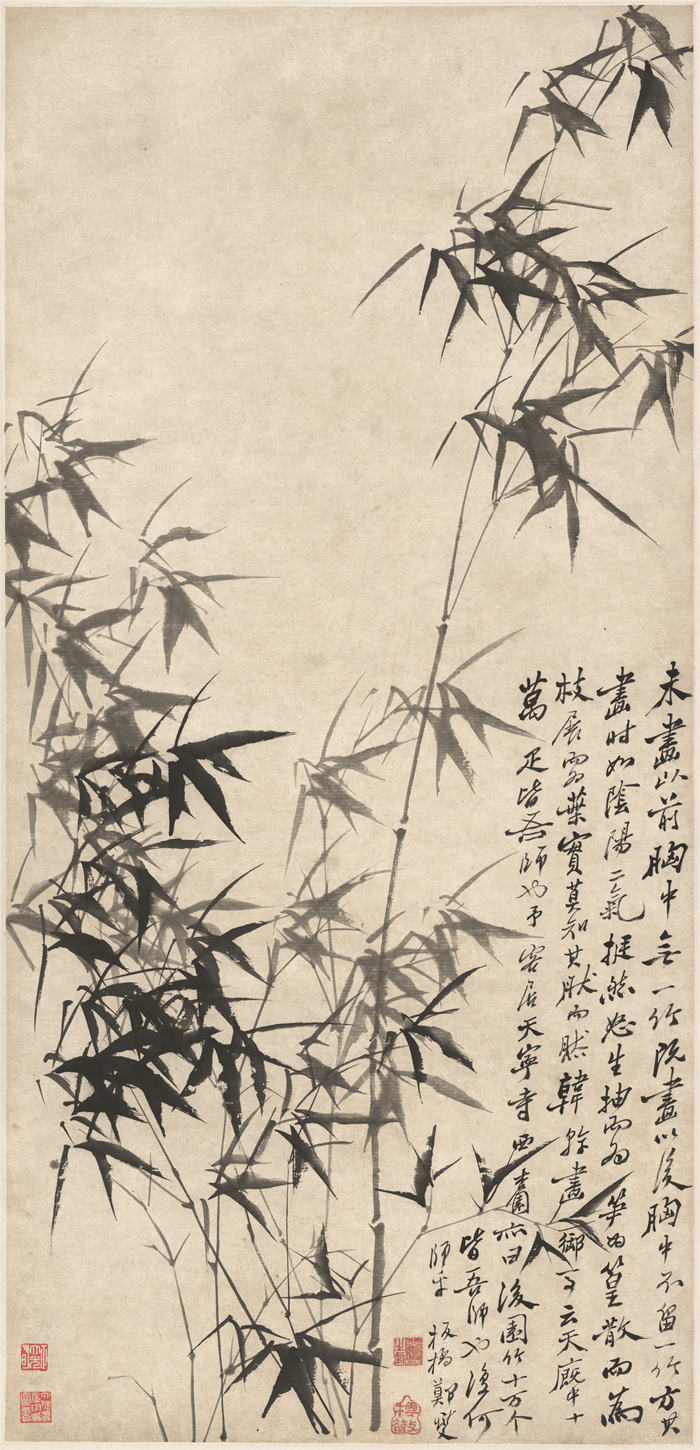 未畫以前胸中無一竹既畫以後胸中不留一竹方其
畫時如陰陽二氣挺然怒生抽而為筍為篁散而為
枝展而為葉實莫知其然而然韓幹畫御馬云天廄中十
萬疋皆吾師也予客居天寧寺西齋亦曰後園竹十萬个
皆吾師也復何
師乎 板橋鄭燮